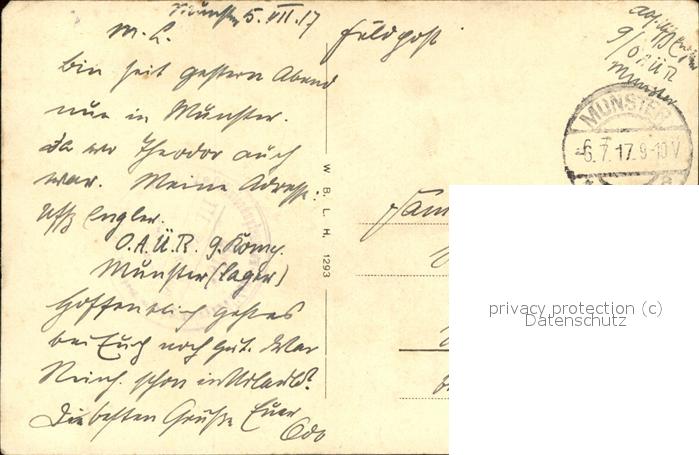 Munster 5. VII. 17
M. L.
bin seit gestern Abend
nun in Munster.
da wo Theodor auch
war. Meine Adresse:
Uffz Engler.
O.A.Ü.R. 9. Komp.
Munster (Lager)
Hoffentlich geht es
bei Euch noch gut. War
Reinh. schon in Urlaub?
Die besten Grüße Euer
Odo
Feldpost
9/OAÜR
Munster
MUNSTER
-6.7.17.9-10V
W.B.L.H. 1293
Fam
privacy protection (c)
Datenschutz